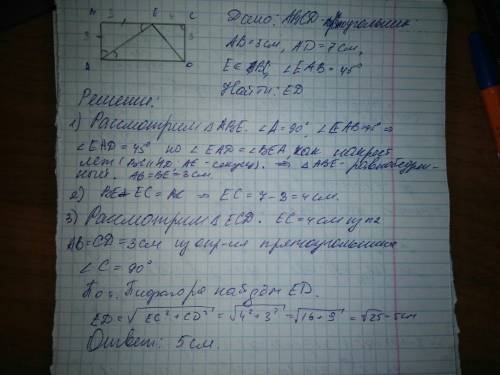 B 3 E 4 C
3 3
A D
Дано: ABCD - прямоугольник
AB=3см, AD=7см,
E∈BC, ∠EAB=45°
Найти: ED
Решение:
1) Рассмотрим △ABE. ∠A=90°, ∠EAB=45° ⇒
∠EAD=45° но ∠EAD=∠BEA, как накрест
лежт (BC||AD, AE - секущ). ⇒ △ABE - равнобедрен-
ный. AB=BE=3см.
2) BE+EC=BC ⇒ EC=7-3=4см.
3) Рассмотрим △ECD. EC=4см из п2
AB=CD=3см из опр-ия прямоугольника
∠C=90°
По т. Пифагора найдём ED.
ED=√EC²+CD²=√4²+3²=√16+9=√25=5см
Ответ: 5см.